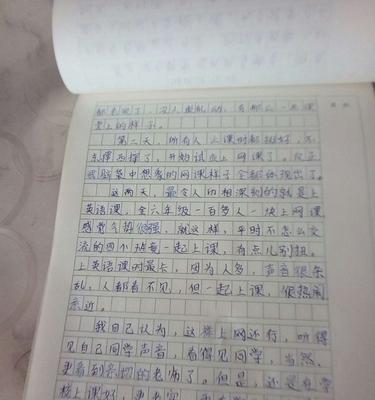 都来晚了，没人乱动，有那么一点课
堂上的样子。
第二天，所有人上课时都挺好，不
东摸西摸了，开始试上网课了。反正
我脑袋中想象的网课样子全都体现出了。
这两天，最令人印相深刻的就是上
英语课，全六年级一百多人一块上网课
感觉气势很强，就这样，平时不怎么交
流的四个班要一起上课，有点儿别扭。
上英语课时最卡，因为人多，声音很杂
乱，人都看不见，但一起上课，很热闹
亲近。
我自己认为，这样上网还行，听得
见自己同学声音，看得见同学，当然，
更看到亲切的老师了。但是，还是在学
校上课好，更